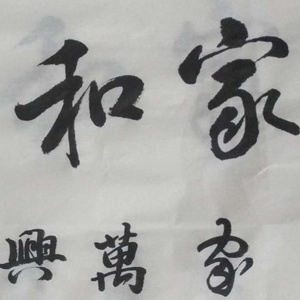 家和
家萬興